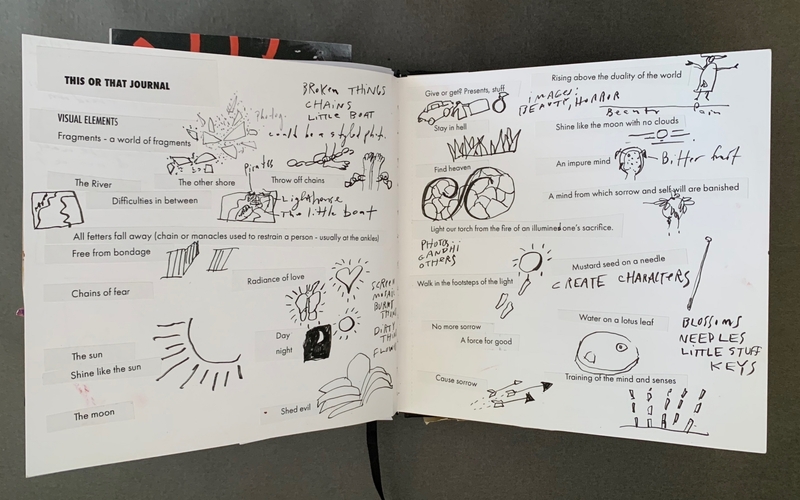 THIS OR THAT JOURNAL
BROKEN THINGS
CHAINS
LITTLE BOAT
VISUAL ELEMENTS
Fragments - a world of fragments
could be a styled
Pirates
The River
The other shore
Throw off chains
Difficulties in between
Lighthouse
The little boat
All fetters fall away (chain or manacles used to restrain a person - usually at the ankles)
Free from bondage
Radiance of love
Chains of fear
SCREEN
Day
night
DIRTY
The sun
Shine like the sun
The moon
Shed evil
Give or get? Presents, stuff
Rising above the duality of the world
IMAGES:
BEAUTY, HORROR
Beauty
Pain
Stay in hell
Shine like the moon with no clouds
Find heaven
An impure mind
Bitter
A mind from which sorrow and self will are banished
Light our torch from the fire of an illumined one's sacrifice.
PHOTOS:
GANDHI
OTHERS
Mustard seed on a needle
CREATE CHARACTERS
Walk in the footsteps of the light
No more sorrow
A force for good
Water on a lotus leaf
BLOSSOMS
NEEDLES
LITTLE STUFF
KEYS
Cause sorrow
Training of the mind and senses